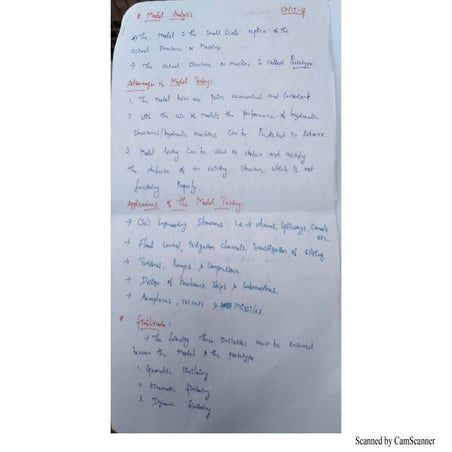 # Model Analysis UNIT-
The Model is the small scale replica of the
actual structure or Machine.
→ The actual structure or machine is called Prototype.
Advantages of Model Testing:
1. The Model tests are quite economical and convenient.
2. with the use of models the performance of hydraulic
structures/hydraulic machines can be Predicted in Advance.
3. Model testing can be used to detect and rectify
the defects of an existing structure which is not
functioning Properly.
Applications of the Model Testing:
→ Civil Engineering structures i.e → dams, spillways, canals etc.
→ Flood control, Irrigation channels, Investigation of
→ Turbines, Pumps & Compressors
→ Design of harbours, ships & submarines.
→ Aeroplanes, rockets & Missiles
* Similitude:
→ The following three similarities must be ensured
between the Model & the prototype
1. Geometric Similarity
2. Kinematic Similarity
3. Dynamic Similarity
Scanned by CamScanner